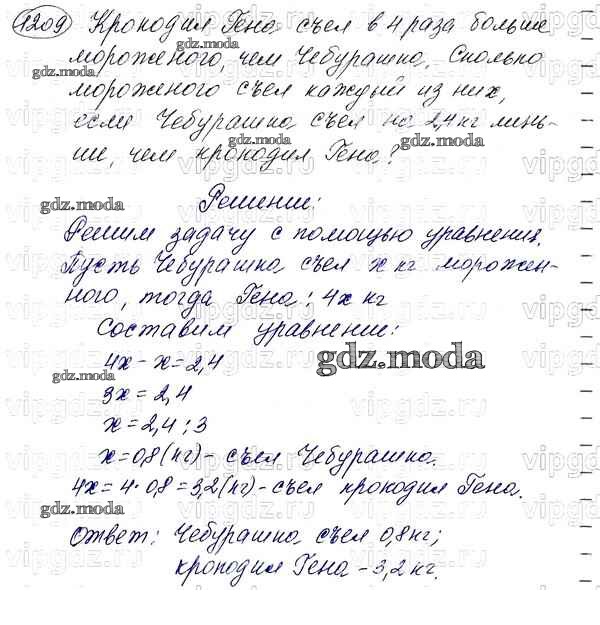 1209 Крокодил Гена съел в 4 раза больше
мороженого, чем Чебурашка. Сколько
gdz.moda
мороженого съел каждый из них,
если Чебурашка съел на 2,4 кг мень-
ше, чем крокодил Гена?
gdz.moda
Решение:
Решим задачу с помощью уравнения.
Пусть Чебурашка съел x кг морожен-
ного, тогда Гена: 4x кг
Составим уравнение:
4x - x = 2,4
gdz.moda
3x = 2,4
x = 2,4 : 3
x = 0,8 (кг) - съел Чебурашка.
4x = 4 · 0,8 = 3,2 (кг) - съел крокодил Гена.
gdz.moda
Ответ: Чебурашка съел 0,8 кг;
крокодил Гена - 3,2 кг.
vipgdz.ru